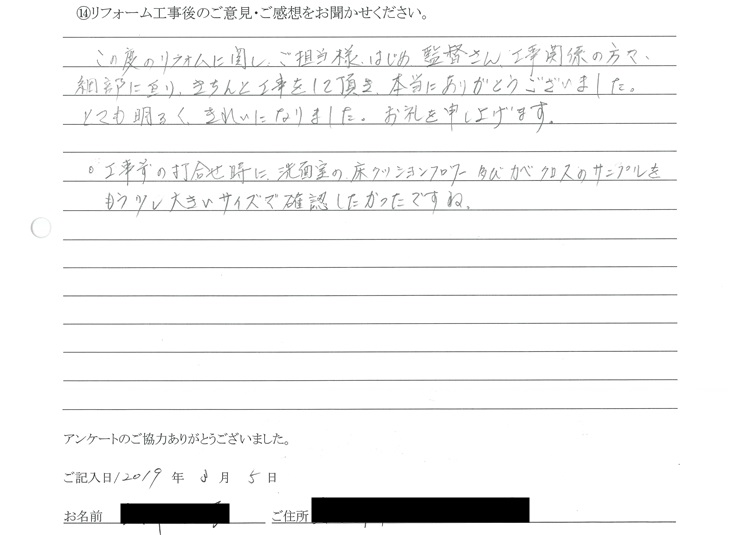 ⑭リフォーム工事後のご意見・ご感想をお聞かせください。
この度のリフォームに関し、ご担当様、はじめ 監督さん、工事関係の方々、
細部に亘り、きちんと工事をして頂き、本当にありがとうございました。
とても明るく、きれいになりました。お礼を申し上げます。
○工事前の打合せ時に、洗面室の床クッションフロワー及びカベクロスのサンプルを
もう少し大きいサイズで確認したかったですね。
アンケートのご協力ありがとうございました。
ご記入日 2019 年 月 5 日
お名前 ご住所